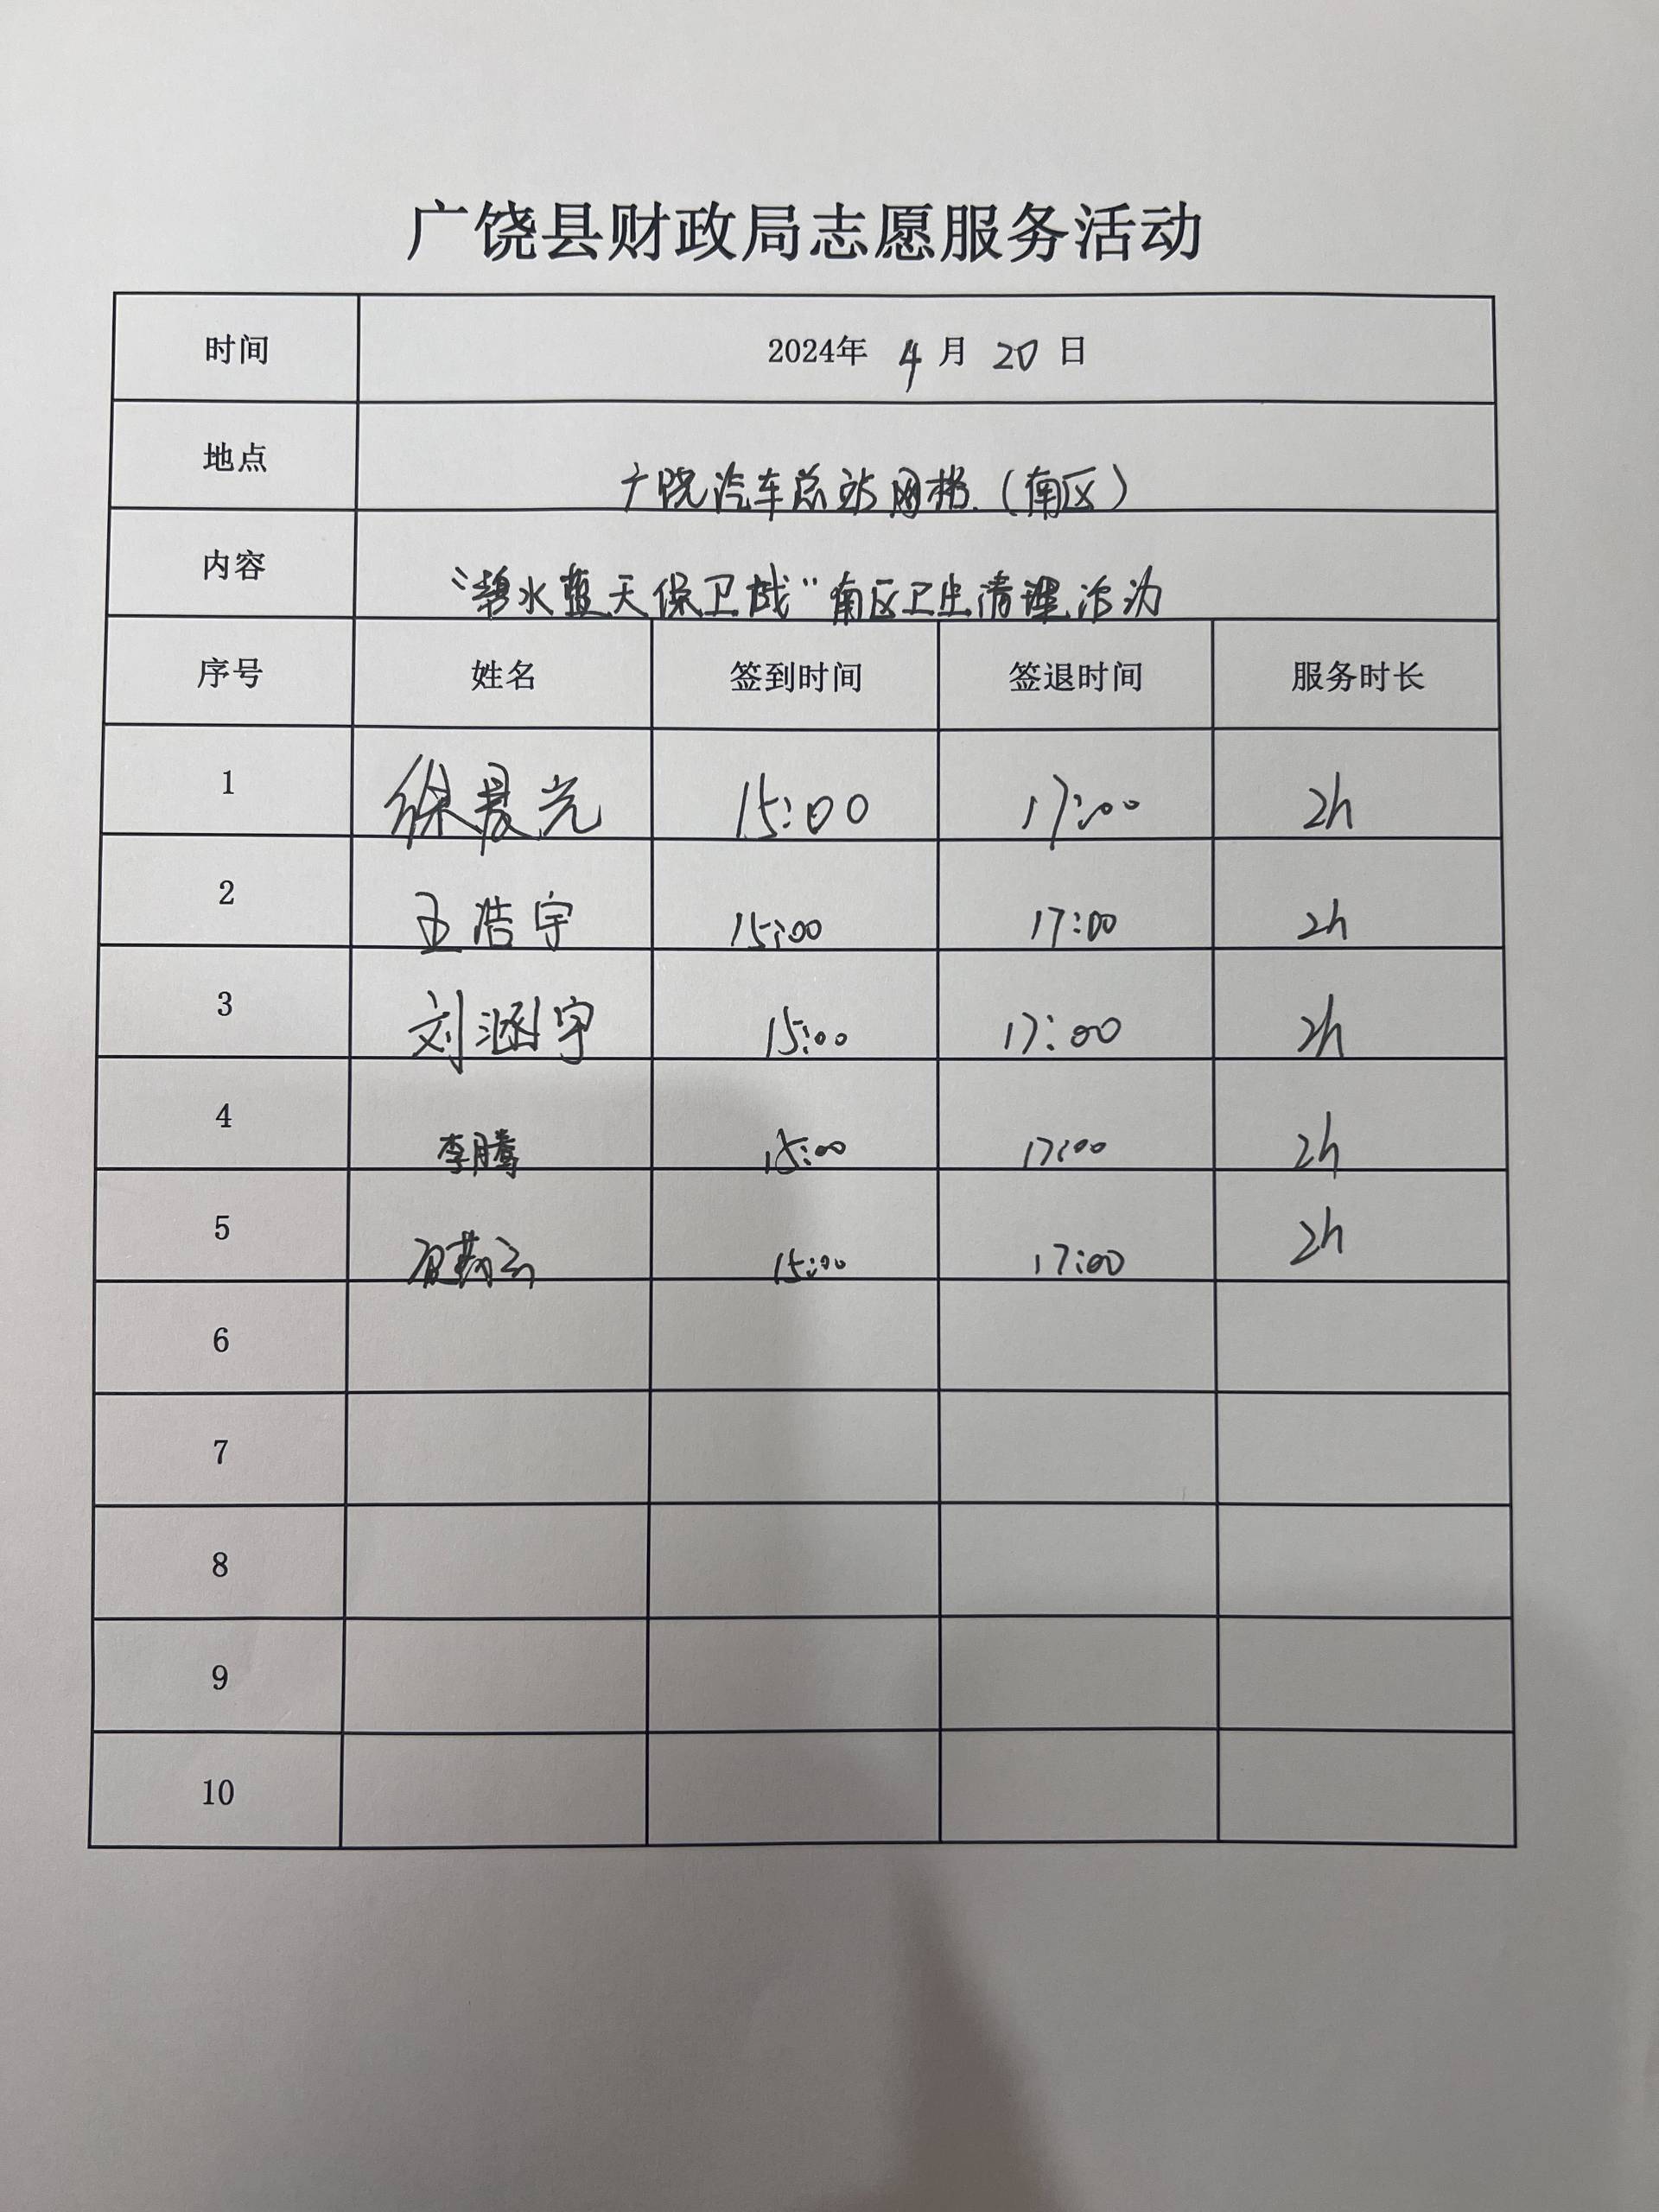 广饶县财政局志愿服务活动
时间 2024年 4 月 20 日
地点 广饶汽车总站网格（南区）
内容 “碧水蓝天保卫战”南区卫生清理活动
序号 姓名 签到时间 签退时间 服务时长
1 徐晨光 15:00 17:00 2h
2 王浩宇 15:00 17:00 2h
3 刘涵宇 15:00 17:00 2h
4 李腾 15:00 17:00 2h
5 15:00 17:00 2h
6
7
8
9
10